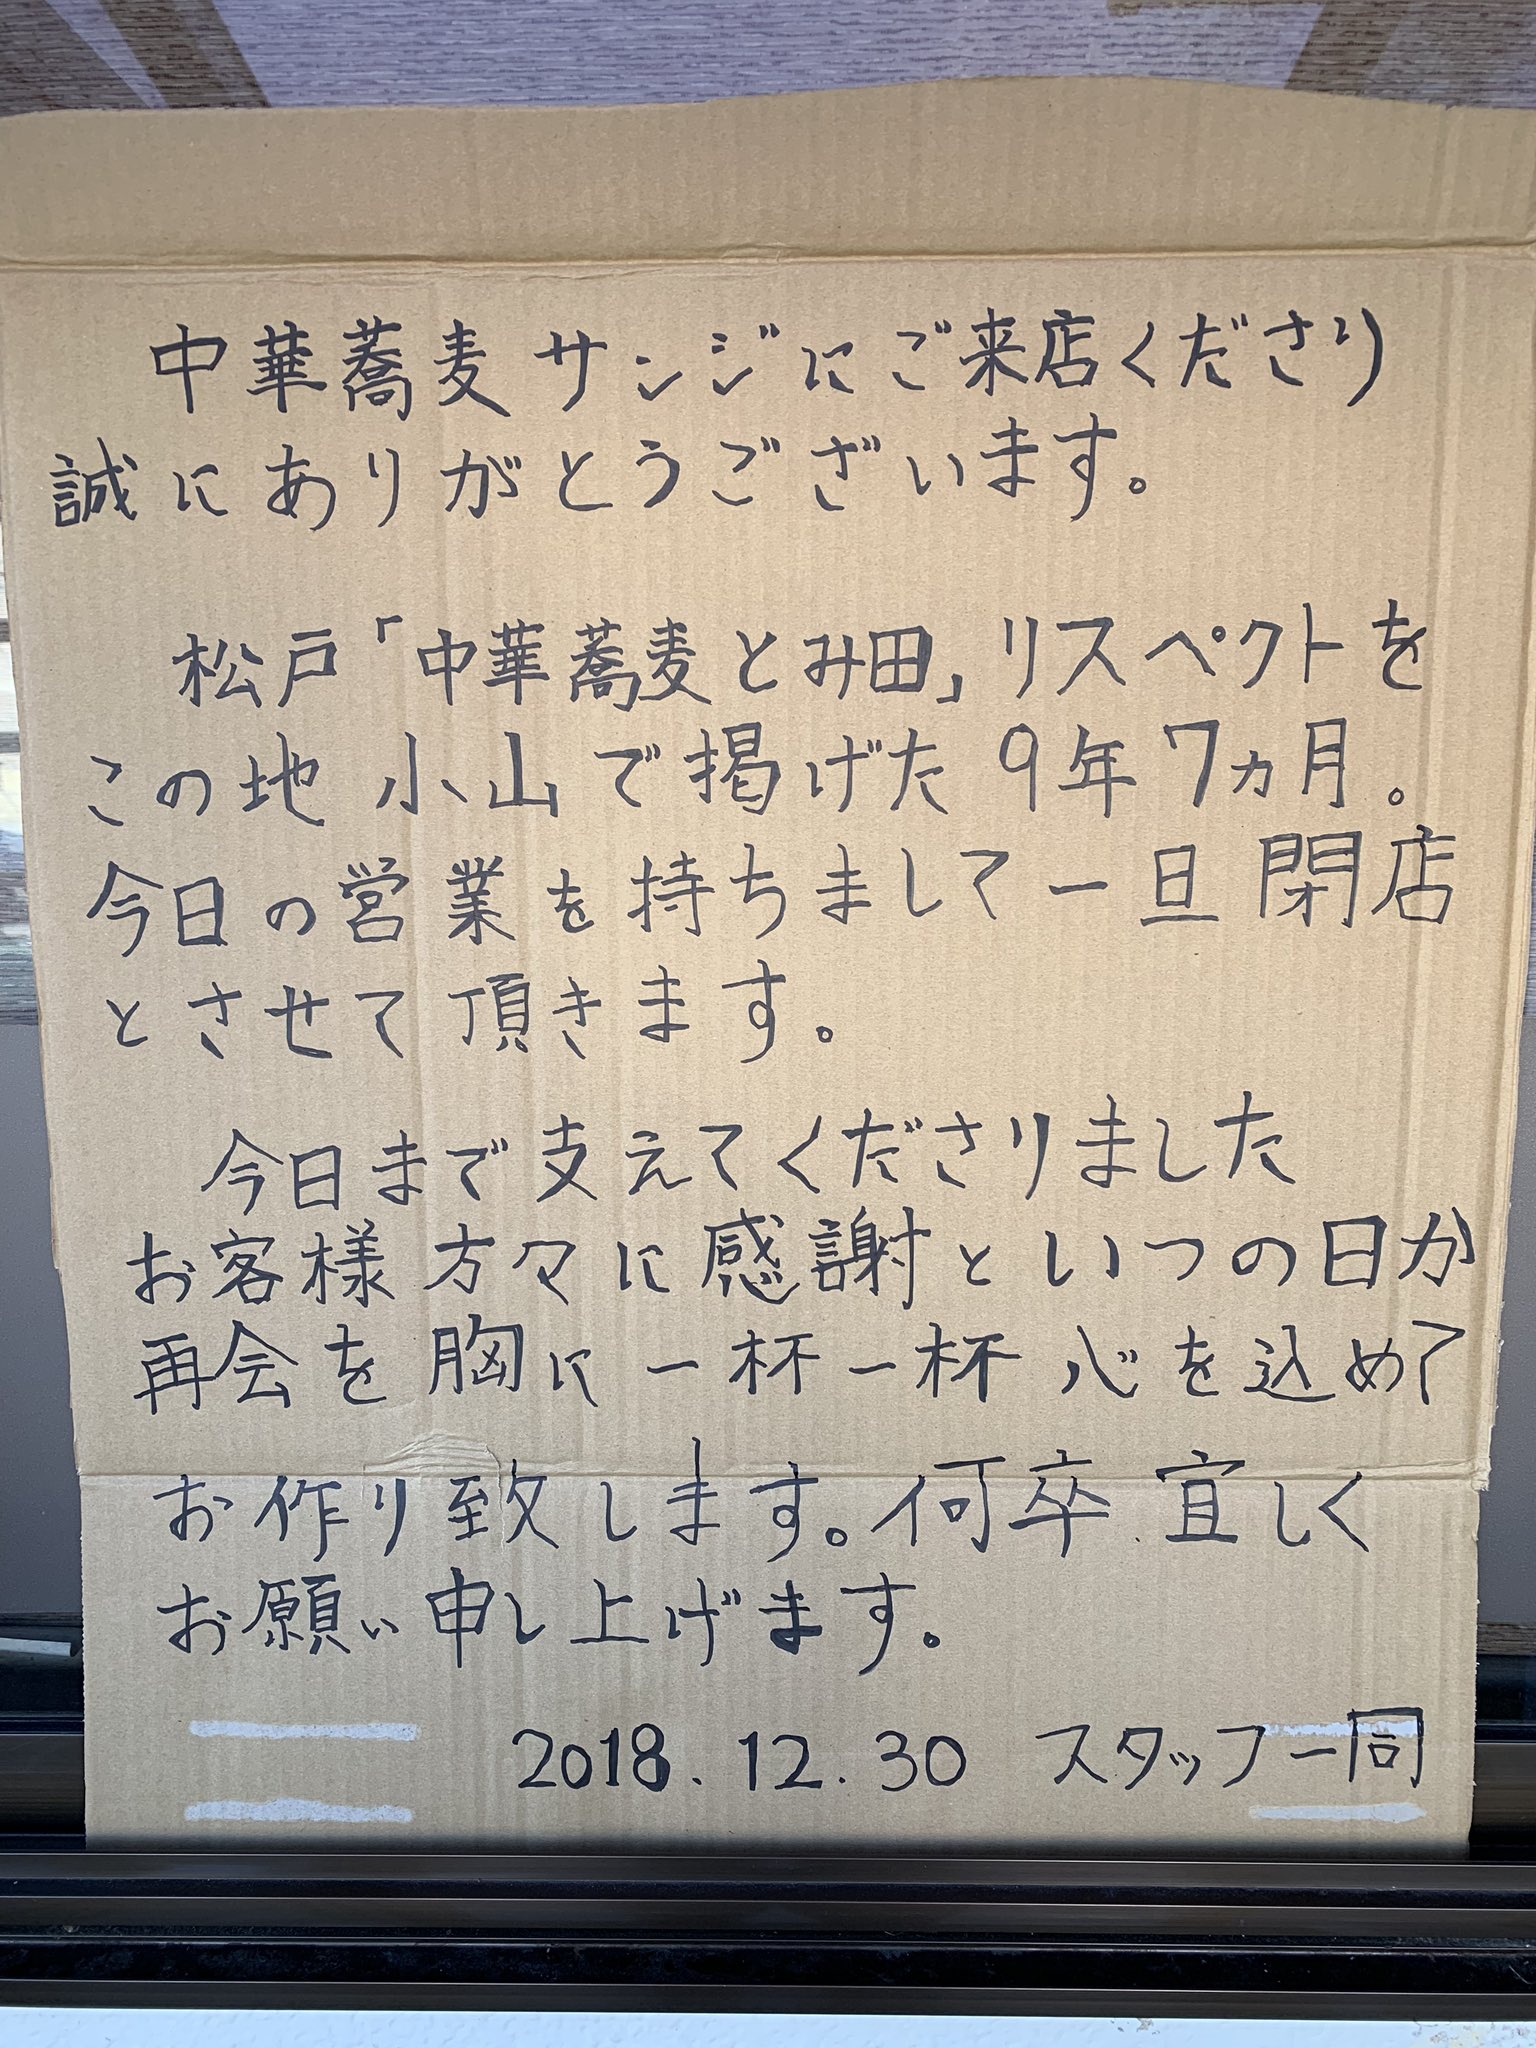 中華蕎麦サンジにご来店くださり
誠にありがとうございます。
松戸「中華蕎麦とみ田」リスペクトを
この地 小山で掲げた9年7ヵ月。
今日の営業を持ちまして一旦閉店
とさせて頂きます。
今日まで支えてくださりました
お客様方々に感謝といつの日か
再会を胸に一杯一杯 心を込めて
お作り致します。何卒、宜しく
お願い申し上げます。
2018.12.30 スタッフ一同